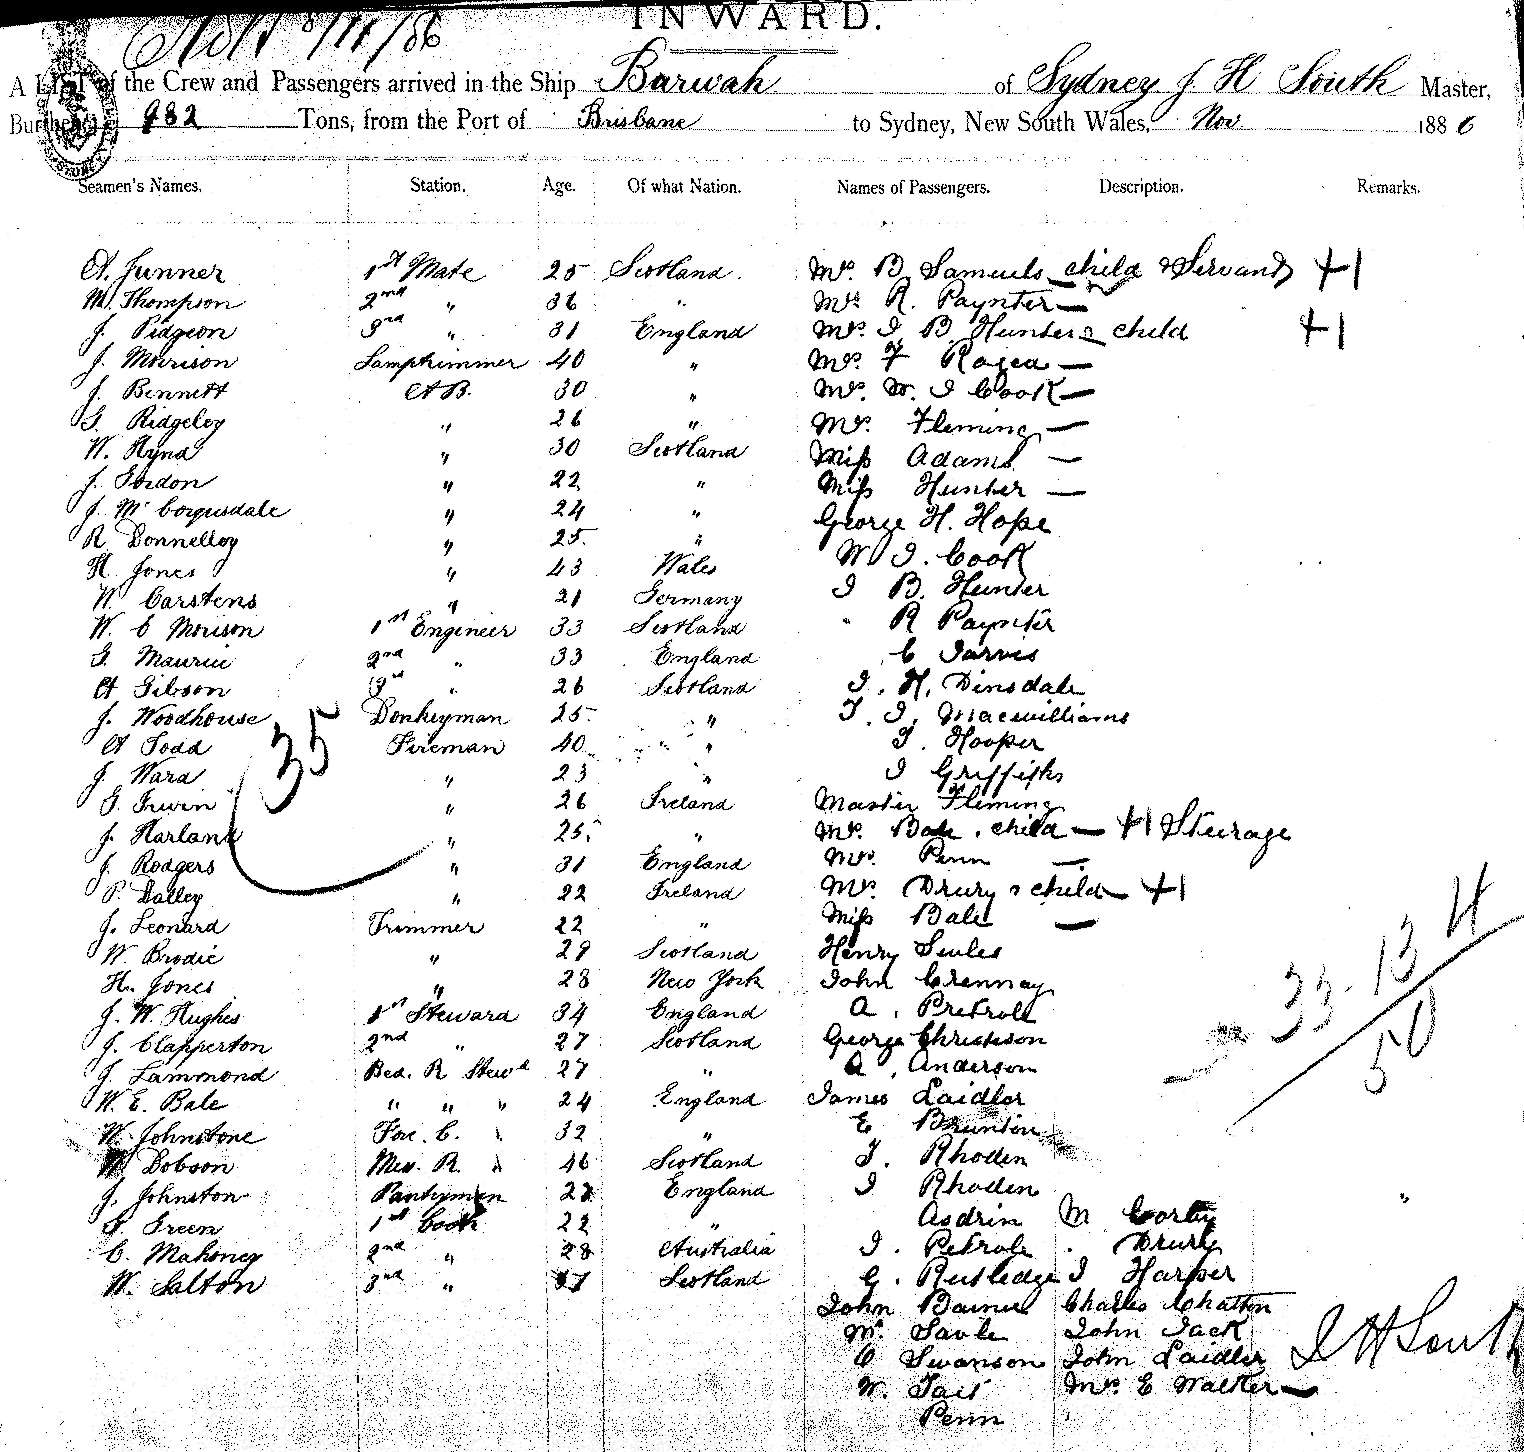 INWARD.
8/11/86
A LIST of the Crew and Passengers arrived in the Ship Barwah of Sydney J. H South Master,
Burthen 982 Tons, from the Port of Brisbane to Sydney, New South Wales, Nov 1886
Seamen's Names. Station. Age. Of what Nation. Names of Passengers. Description. Remarks.
A. Junner 1st Mate 25 Scotland. Mrs. B. Samuels child & Servant +1
M. Thompson 2nd " 36 " Mrs R. Paynter —
J. Pidgeon 3rd " 31 England Mrs. I B. Hunter & child +1
J. Morrison Lamptrimmer 40 " Mrs. F —
J. Bennett A B. 30 " Mrs. W. I Cook —
G. Ridgeley " 26 " Mrs. Fleming —
W. Hynd " 30 Scotland Miss Adams —
J. Gordon " 22 " Miss Hunter —
J. Mc Corquodale " 24 " George H. Hope
R Donnelloy " 25 " W I. Cook
H. Jones " 43 Wales I B. Hunter
W. Carstens " 21 Germany " R Paynter
W. C Morison 1st Engineer 33 Scotland C Jarvis
G. Maurice 2nd " 33 England I. H. Dinsdale
A Gibson 3rd " 26 Scotland T. I. Macwilliams
J. Woodhouse Donkeyman 25 " T. Hooper
A Todd Fireman 40 " I Griffiths
J. Ward " 23 " Master Fleming
G. Irwin " 26 Ireland Mrs. Bale . child — +1 Steerage
J. Harland " 25 " Mrs. Penn —
J. Rodgers " 31 England Mrs. Drury & child — +1
P. Dalley " 22 Ireland Miss Bale —
J. Leonard Trimmer 22 " Henry
W. Brodie " 29 Scotland John Crennay
H. Jones " 28 New York A. Petrole
J. W. Hughes 1st Steward 34 England George Christeson
J. Clapperton 2nd " 27 Scotland A. Anderson
J. Lammond Bed. R Stewd 27 " James Laidler
W. E. Bale " " " 24 England E Brunton
W. Johnstone Fore. C. " 32 " T. Rhoden
W Dobson Mess. R. " 46 Scotland I Rhoden
J. Johnston Pantryman England Asdrin M Corby
G. Green 1st Cook 22 " I. Petrole . Drury
C. Mahoney 2nd " 28 Australia G. Rutledge I Harper
W. Salton 3rd " Scotland John Charles Chatten
Mr John Jack
C Swanson John Laidler
W. Tait Mrs. E Walker —
Penn
35
33. 13 4
50
J H South